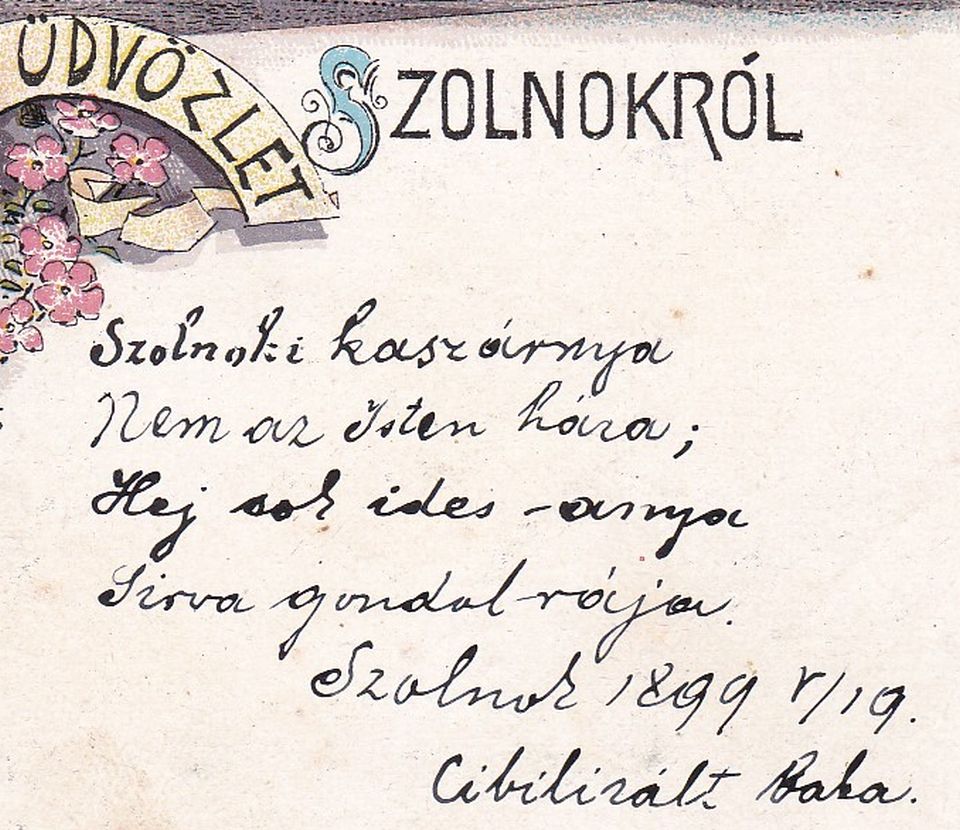 ÜDVÖZLET SZOLNOKRÓL
Szolnoki kaszárnya
Nem az Isten háza;
Hej sok ides-anya
Sirva gondol-rája.
Szolnok 1899 V/19.
Cibilizált Baka.